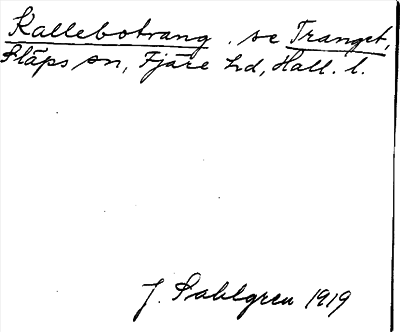 Kallebotrang . se Tranget,
Släps sn, Fjäre hd, Hall. l.
J. Sahlgren 1919